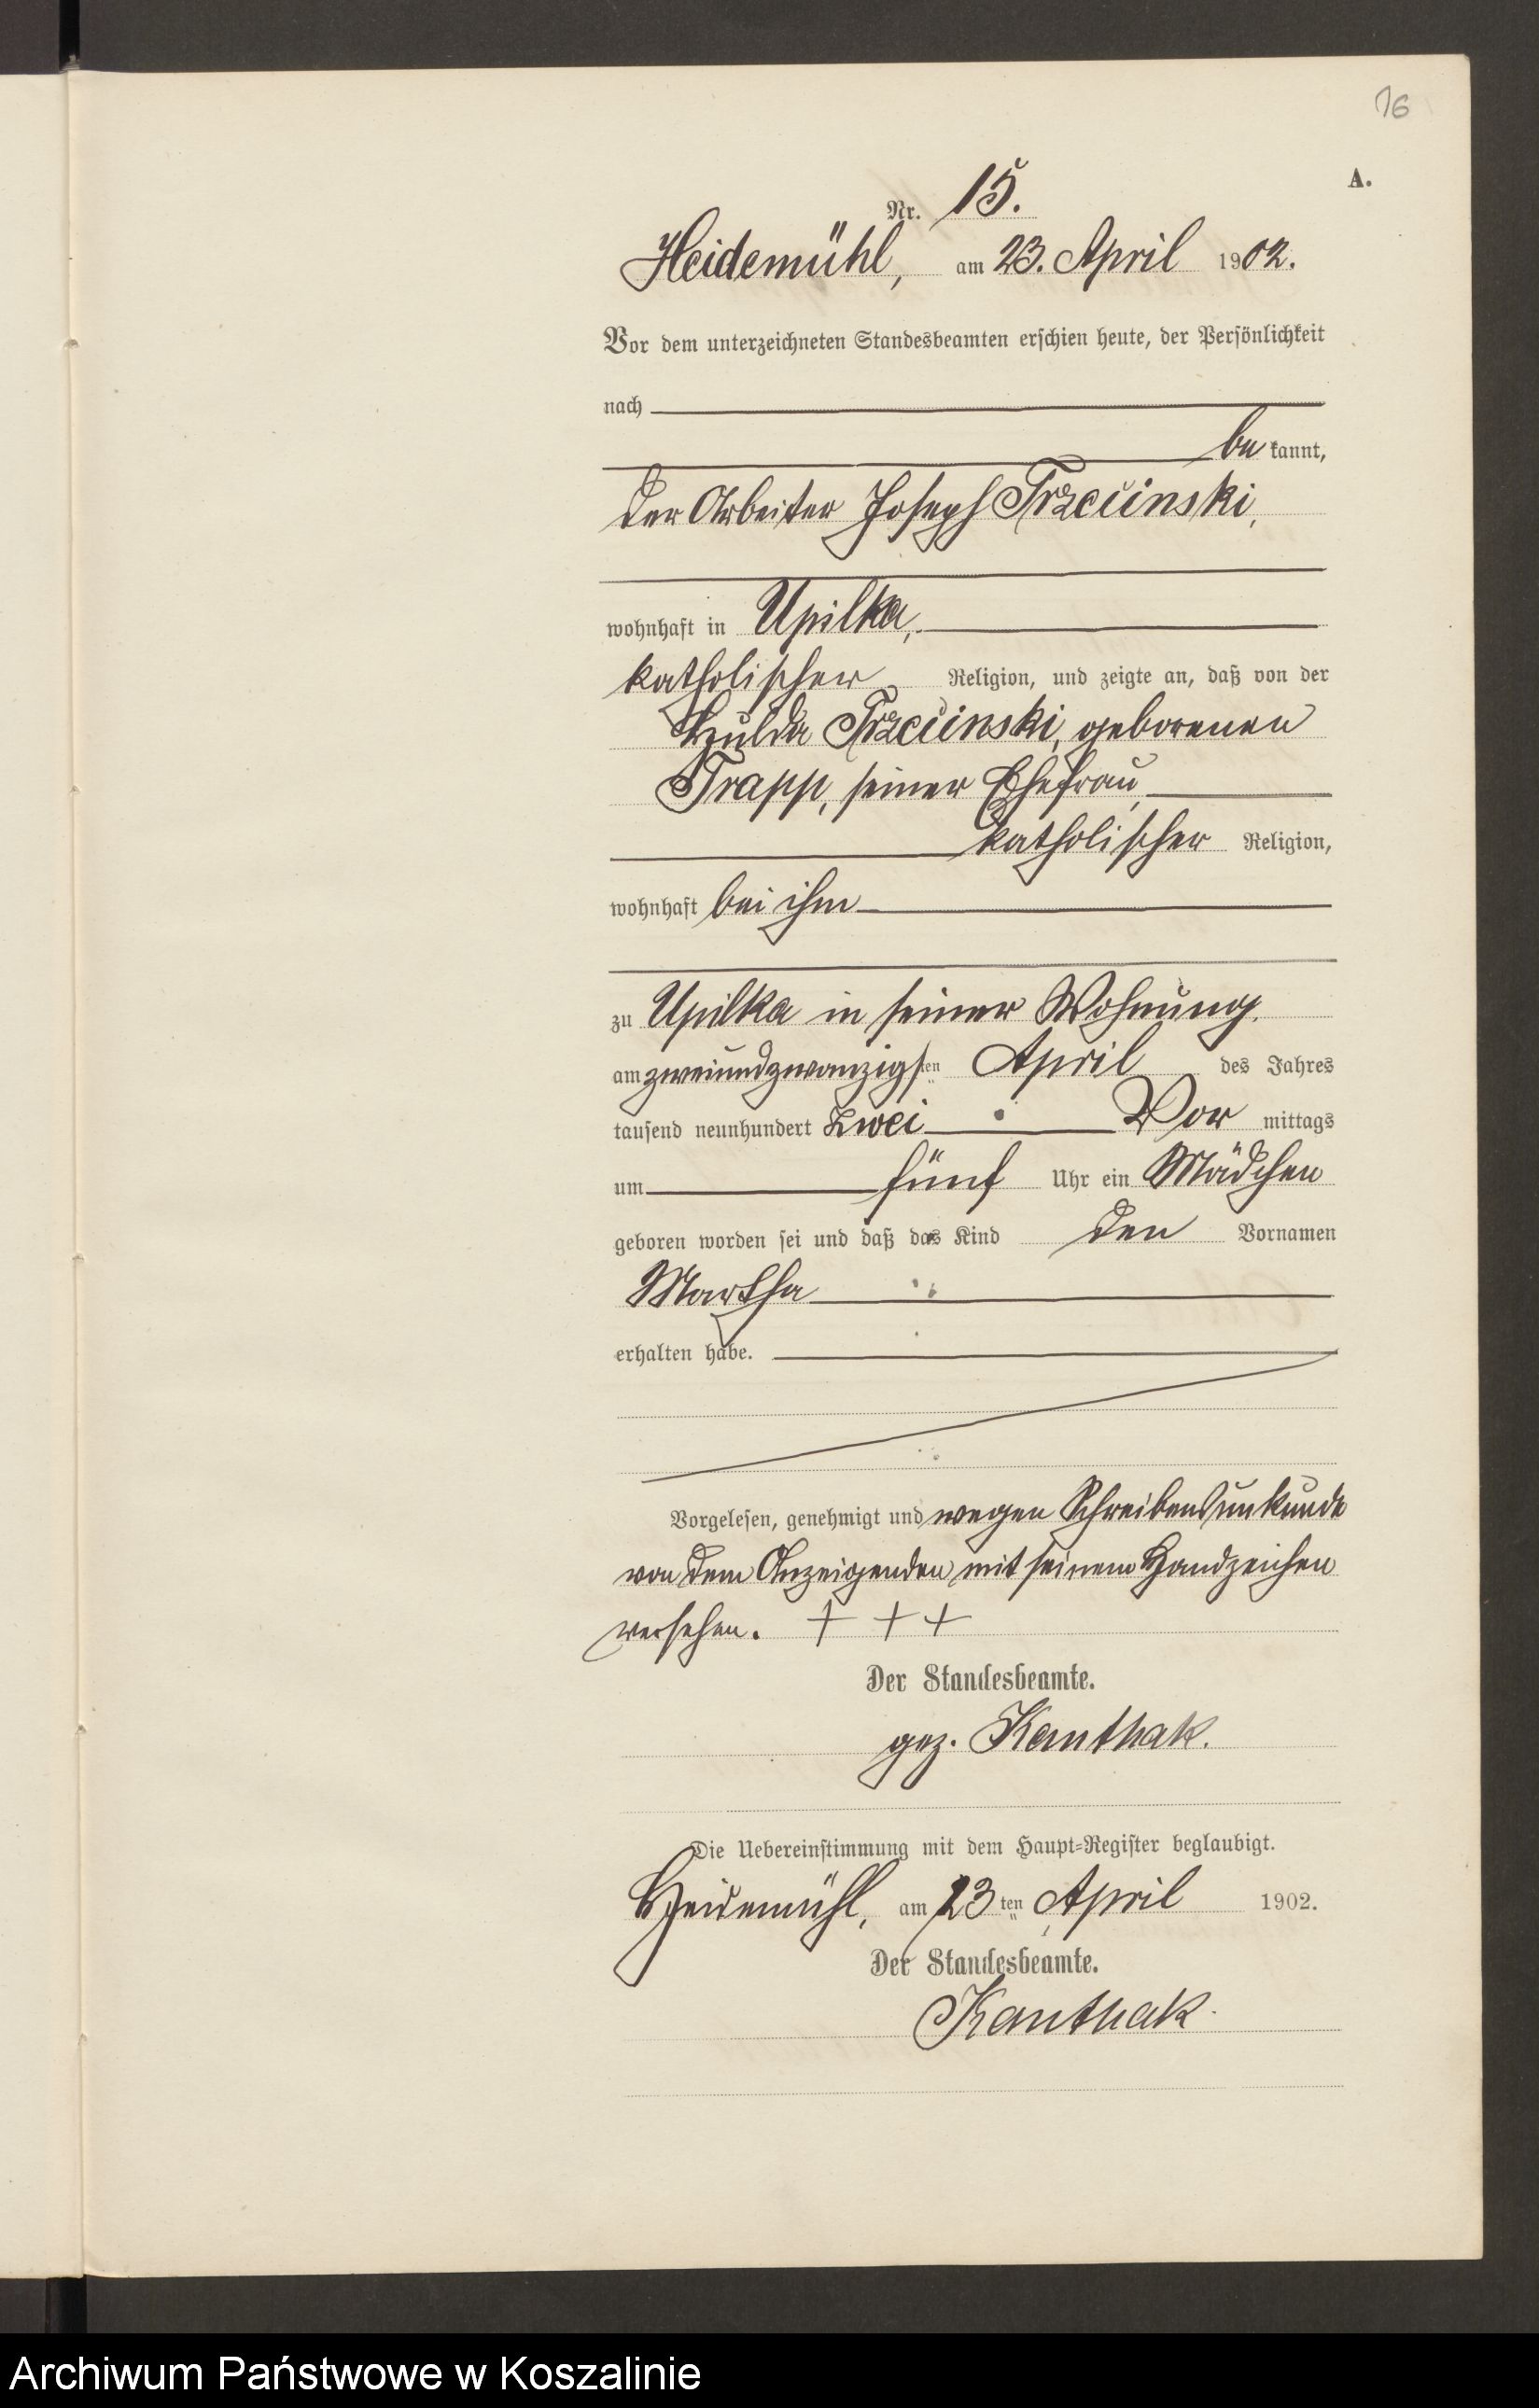 16
A.
Nr. 15.
Heidemühl, am 23. April 1902.
Vor dem unterzeichneten Standesbeamten erschien heute, der Persönlichkeit
nach
be kannt,
der Arbeiter Joseph Trzcinski,
wohnhaft in Upilka,
katholischer Religion, und zeigte an, daß von der
Hulda Trzcinski, geborenen
Trapp, seiner Ehefrau,
katholischer Religion,
wohnhaft bei ihm
zu Upilka in seiner Wohnung,
am zweiundzwanzigsten April des Jahres
tausend neunhundert zwei Vor mittags
um fünf Uhr ein Mädchen
geboren worden sei und daß das Kind den Vornamen
Martha
erhalten habe.
Vorgelesen, genehmigt und wegen Schreibensunkunde
von dem Anzeigenden mit seinem Handzeichen
versehen. + + +
Der Standesbeamte.
gez. Kanthak.
Die Uebereinstimmung mit dem Haupt-Register beglaubigt.
Heidemühl, am 23ten April 1902.
Der Standesbeamte.
Kanthak.
Archiwum Państwowe w Koszalinie